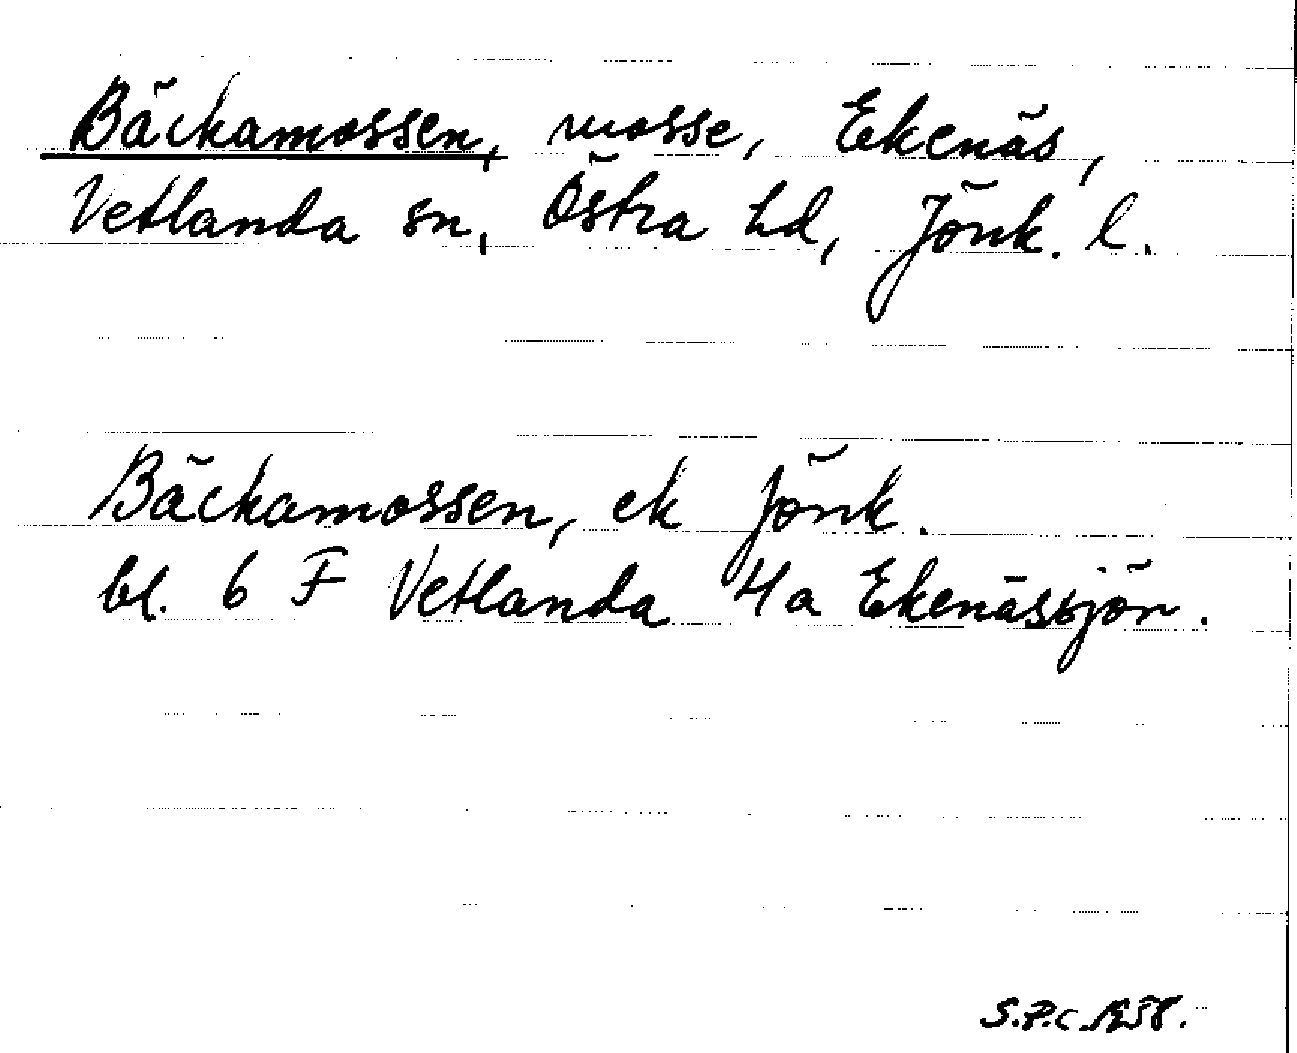 Bäckamossen, mosse, Ekenäs,
Vetlanda sn, Östra hd, Jönk. l.
Bäckamossen, ek Jönk.
bl. 6 F Vetlanda 4a Ekenässjön.
S.P.C. 1958.